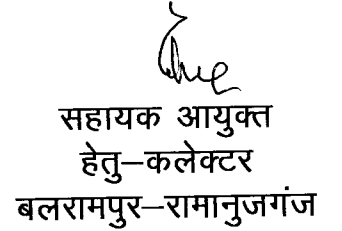 सहायक आयुक्त
हेतु–कलेक्टर
बलरामपुर–रामानुजगंज